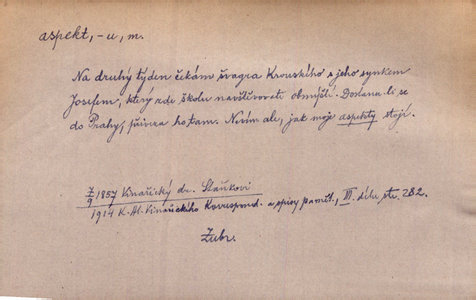 aspekt, -u, m.
Na druhý týden čekám švagra Krouského s jeho synkem
Josefem, který zde školu navštěvovati obmýšlí. Dostanu-li se
do Prahy, přivezu ho tam. Nevím ale, jak moje aspekty stojí.
7/9 1857 Vinařický dr. Staňkovi
1914 K. Al. Vinařického Korrespond. a spisy pamět., III. dílu str. 282.
Zubr.